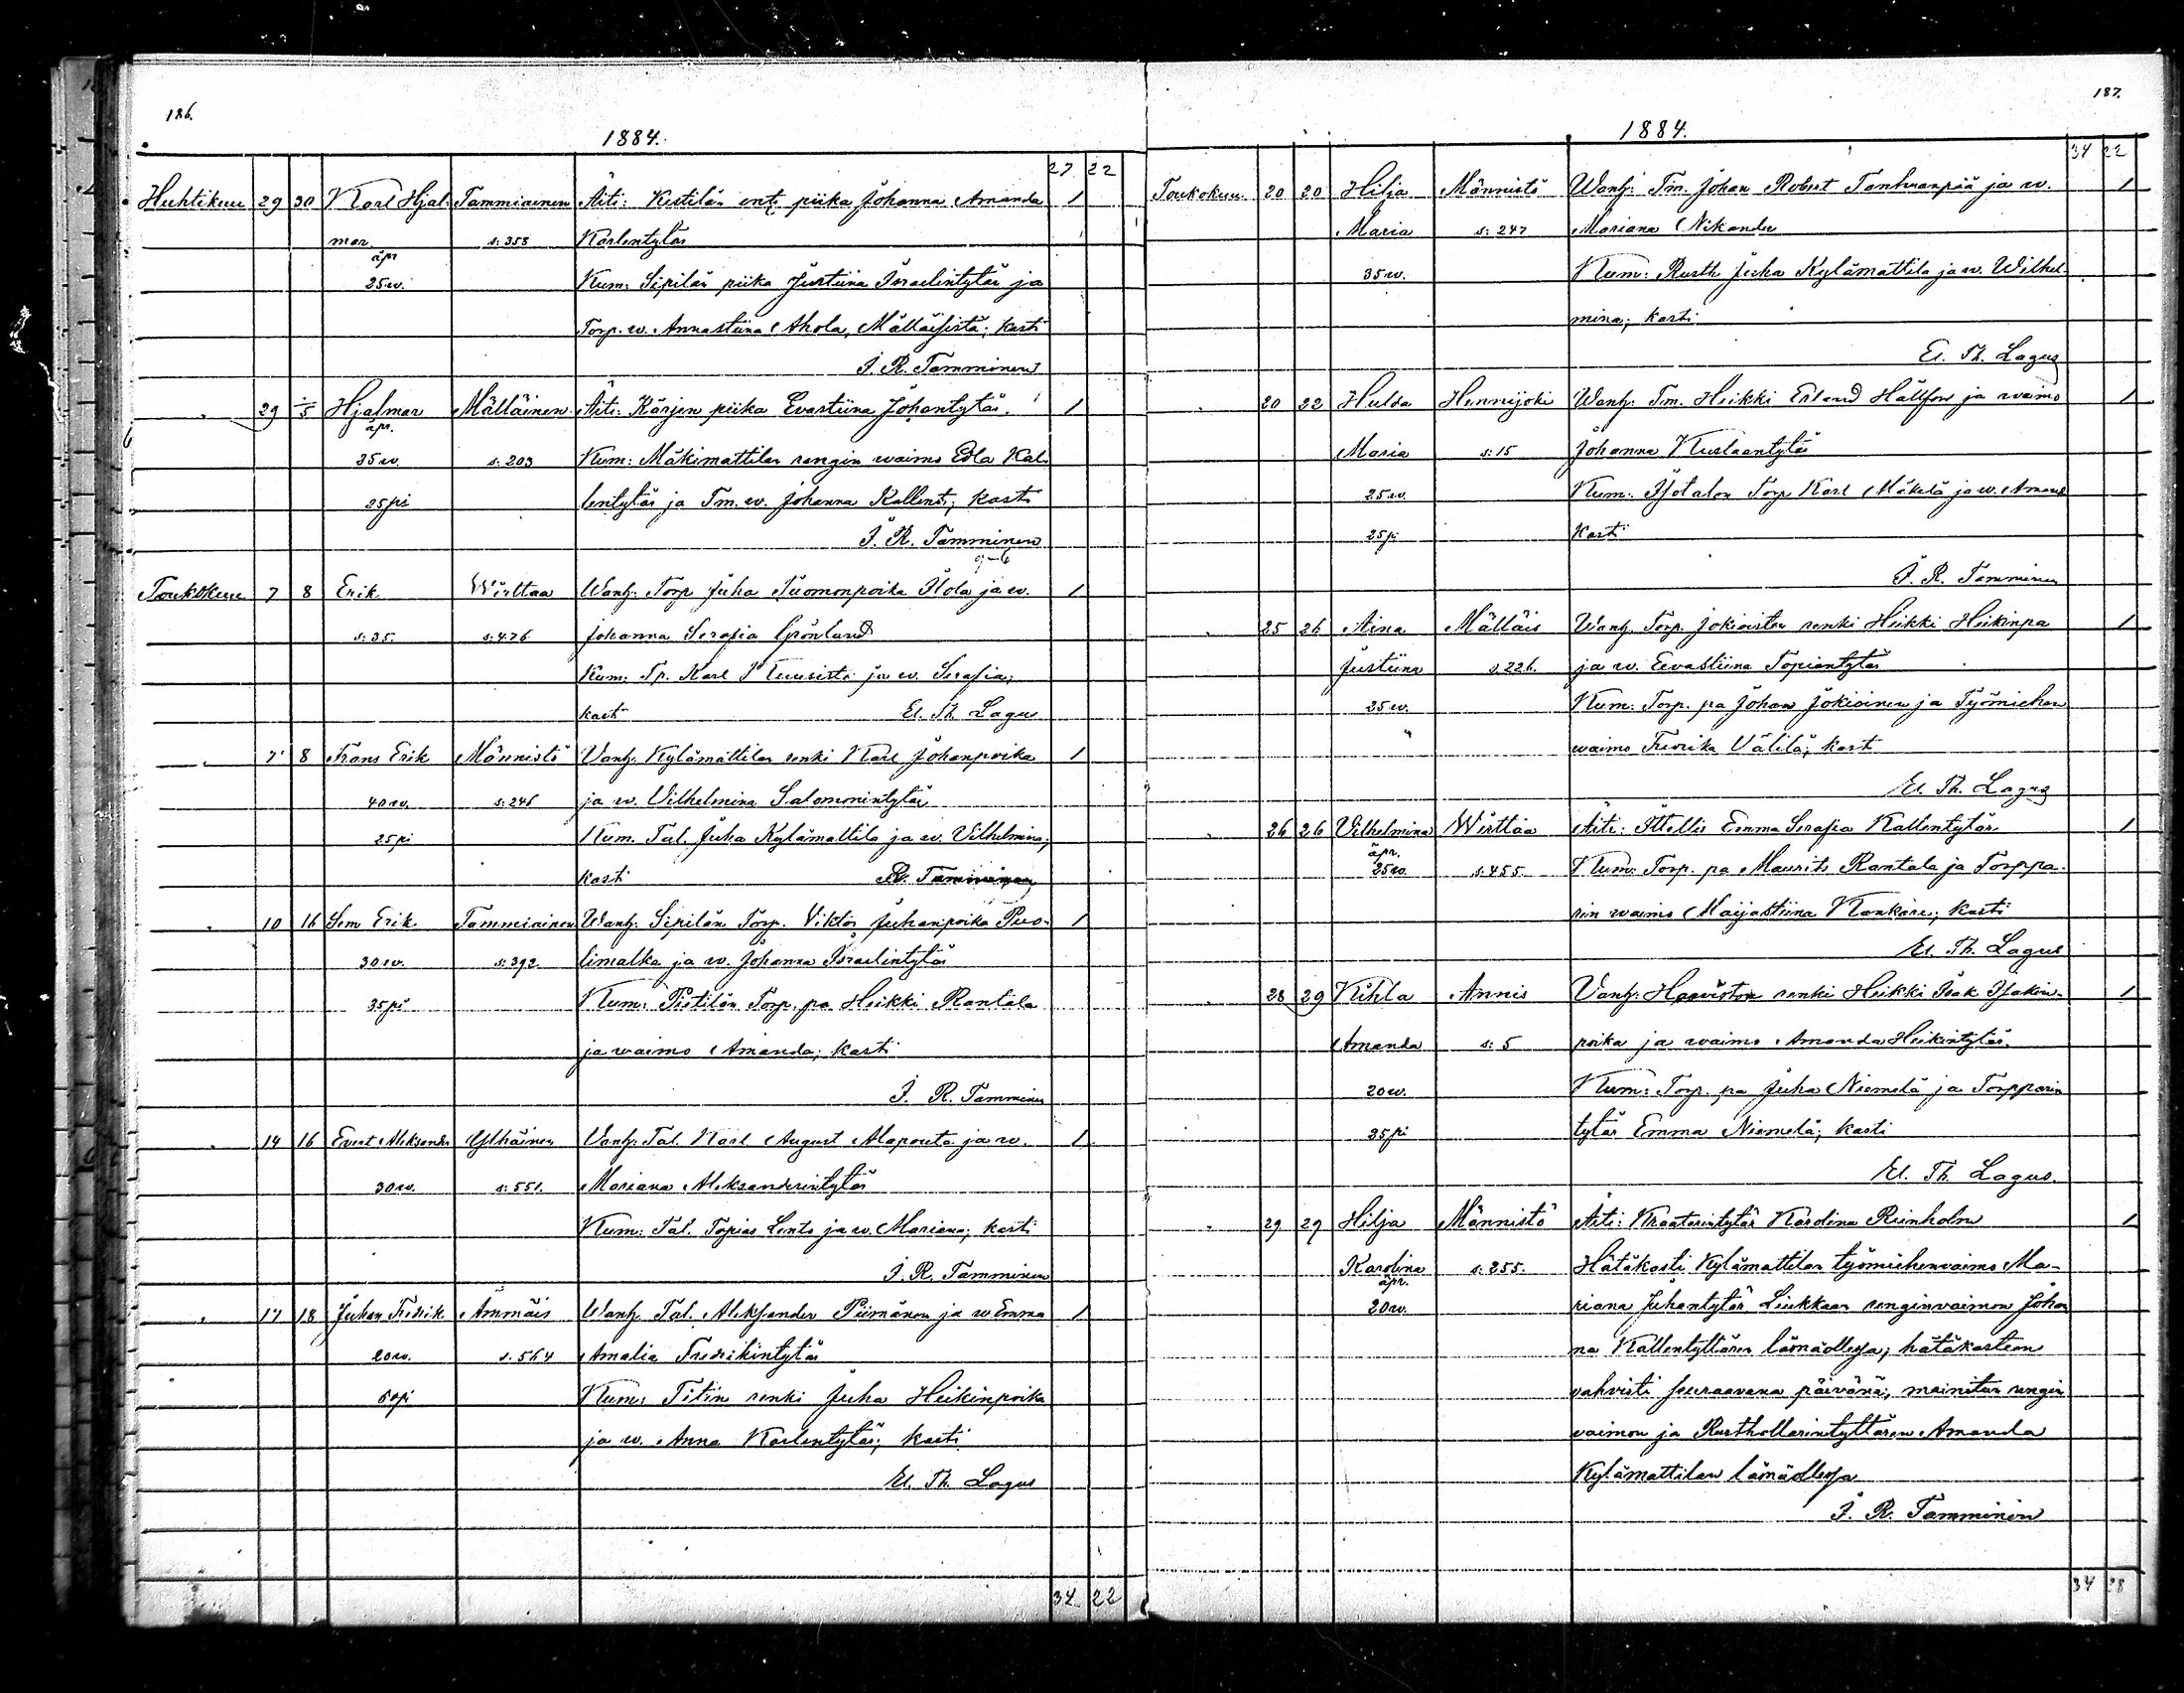 186.
1884.
27 22
Huhtikuu 29 30 Karl Hjal- Tammiainen Äiti: Kestilän ent. piika Johanna Amanda 1
mar s: 358 Karlentytär
äpr
25 w. Kum: Sipilän piika Justiina Israelintytär ja
Torp. w. Annastiina Ahola, Mälläisistä; kasti
J. R. Tamminen
" 29 1/5 Hjalmar Mälläinen Äiti: Kärjen piika Evastiina Johantytär. 1
äpr.
35 w. s: 203 Kum: Mäkimattilan rengin waimo Edla Kal-
25 pi lentytär ja Tm. w. Johanna Kallent; kasti
J. R. Tamminen
9–6
Toukokuu 7 8 Erik Wirttaa Wanh: Torp Juha Tuomonpoika Ilola ja w. 1
s: 35. s: 476 Johanna Serafia Grönlund
Kum: Tp. Karl Kuusisto ja w. Serafia;
kasti El. Th. Lagus
" 7 8 Frans Erik Männistö Vanh: Kylämattilan renki Karl Johanpoika 1
40 w. s: 246 ja w. Vilhelmina Salomonintytär
25 pi Kum. Tal. Juha Kylämattila ja w. Vilhelmina;
kasti R. Tamminen
" 10 16 Erik Tammiainen Wanh: Sipilän Torp. Viktor Juhanpoika Puo- 1
30 w. s: 392. limatka ja w. Johanna Israelintytär
35 pi Kum: Pietilän Torp. pa Heikki Rantala
ja waimo Amanda; kasti
J. R. Tamminen
" 14 16 Evert Aleksander Ylhäinen Vanh: Tal. Karl August Alapouta ja w. 1
30 w. s: 551. Mariana Aleksanderintytär
Kum: Tal. Topias Lento ja w. Mariana; kasti
J. R. Tamminen
" 17 18 Juhan Fredrik Ämmäis Wanh: Tal. Aleksander Piimänen ja w Emma 1
20 w. s. 564 Amalia Fredrikintytär
50 pi Kum: Titin renki Juha Heikinpoika
ja w. Anna Karlentytär; kasti
El. Th. Lagus
34 22
187.
1884.
34 22
Toukokuu. 20 20 Hilja Männistö Wanh: Tm. Johan Robert Tanhuanpää ja w. 1
Maria s: 247 Mariana Nikander
35 w. Kum: Rusth Juha Kylämattila ja w. Wilhel-
mina; kasti
El. Th. Lagus
" 20 22 Hulda Hennijoki Wanh: Tm. Heikki Erland Hällfors ja waimo 1
Maria s: 15 Johanna Kustaantytär
25 w. Kum: Isotalon Torp Karl Mäkelä ja w. Amanda
25 pi kasti
J. R. Tamminen
" 25 26 Aina Mälläis Wanh. Torp. Jokioisten renki Heikki Heikinpa 1
Justiina s. 226. ja w. Eevastiina Topiantytär
25 w. Kum: Torp. pa Johan Jokioinen ja Työmiehen
" waimo Fredrika Välilä; kasti
El. Th. Lagus
" 26 26 Vilhelmina Wirttaa Äiti: Itsellis Emma Serafia Kallentytär. 1
äpr.
25 w. s: 455. Kum: Torp. pa Maurits Rantala ja Torppa-
rin waimo Maijastiina Kankare; kasti
El. Th. Lagus
" 28 29 Kihla Annis Vanh: Haaviston renki Heikki Isak Isakin- 1
Amanda s: 5 poika ja waimo Amanda Heikintytär.
20 w. Kum: Torp. pa Juha Niemelä ja Torpparin
25 pi tytär Emma Niemelä; kasti
El. Th. Lagus.
" 29 29 Hilja Männistö Äiti: Kraatarintytär Karolina Reinholm 1
Karolina s: 255. Hätäkasti Kylämattilan työmiehenwaimo Ma-
äpr.
20 w. riana Juhantytär Liukkaan renginwaimon Johan
na Kallentyttären läsnäollessa; hätäkasteen
vahvisti seuraavana päivänä; mainitun rengin
vaimon ja Rusthollarintyttären Amanda
Kylämattilan läsnäollessa
J. R. Tamminen
34 28